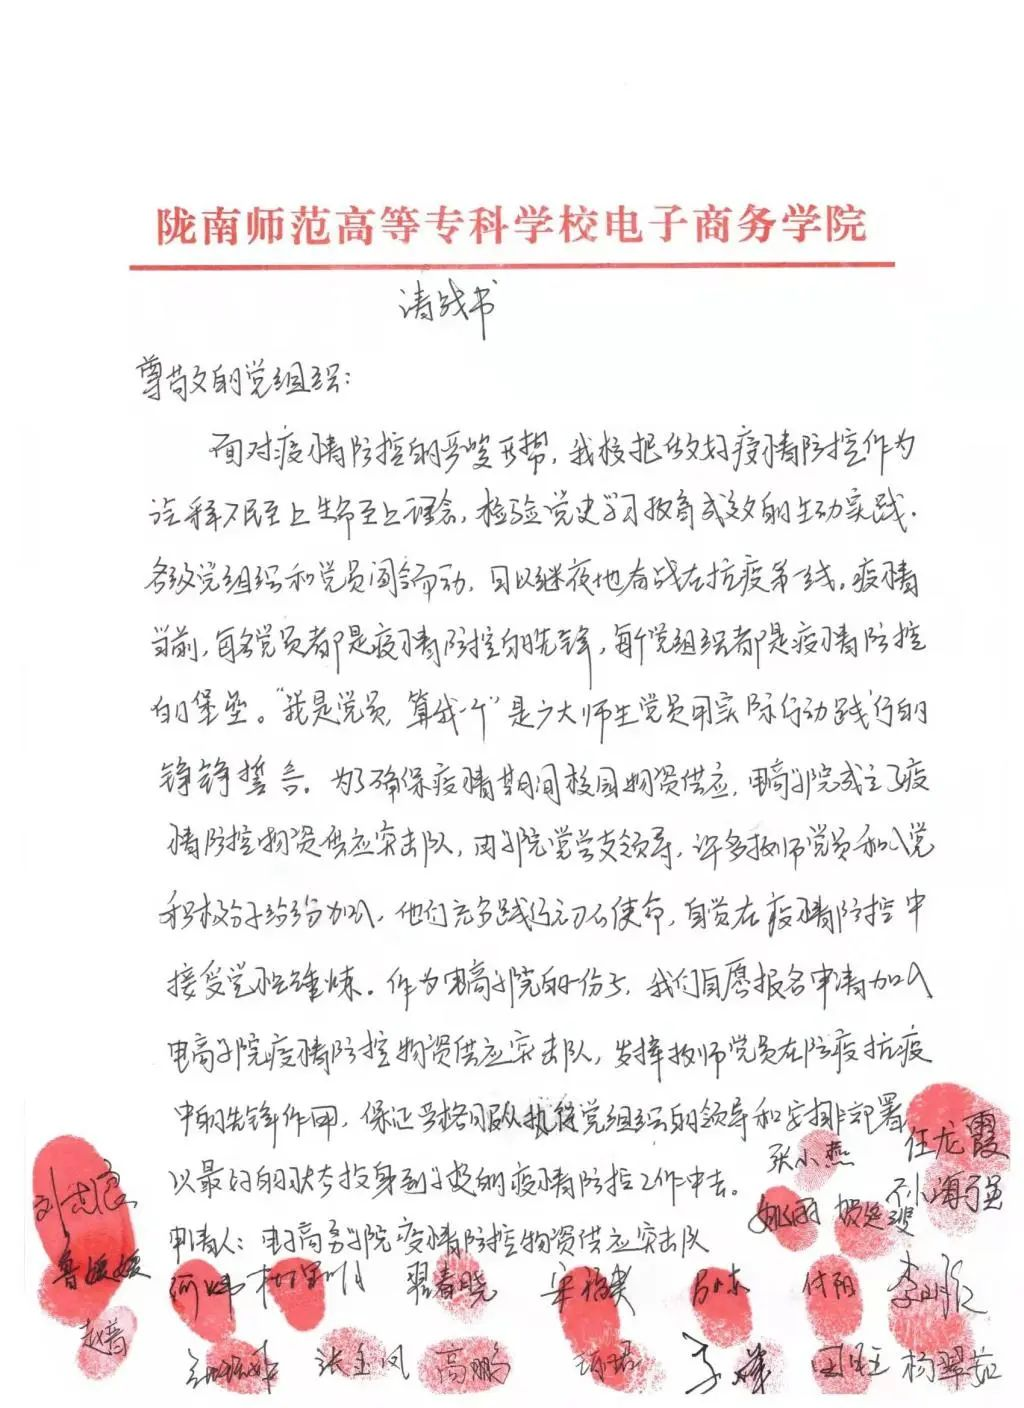 陇南师范高等专科学校电子商务学院
请战书
尊敬的党组织：
面对疫情防控的严峻形势，我校把做好疫情防控作为
诠释人民至上生命至上理念，检验党史学习教育成效的生动实践．
各级党组织和党员闻令而动，日以继夜地奋战在抗疫第一线。疫情
当前，每名党员都是疫情防控的先锋，每个党组织都是疫情防控
的堡垒。“我是党员，算我一个”是广大师生党员用实际行动践行的
铮铮誓言。为了确保疫情期间校园物资供应，电商学院成立了疫
情防控物资供应突击队，由学院党总支领导，许多教师党员和入党
积极分子纷纷加入，他们充分践行初心使命，自觉在疫情防控中
接受党性锤炼。作为电商学院的一份子，我们自愿报名申请加入
电商学院疫情防控物资供应突击队，发挥教师党员在防疫抗疫
中的先锋作用，保证严格服从执行党组织的领导和安排部署
以最好的状态投身到学校的疫情防控工作中去。
申请人：电子商务学院疫情防控物资供应突击队
张小燕 任龙霞
刘志良 姚丽 孙海强
鲁媛媛 翟春晓 宋福贵 付阳
赵普 张金凤 高鹏 杨翠茹